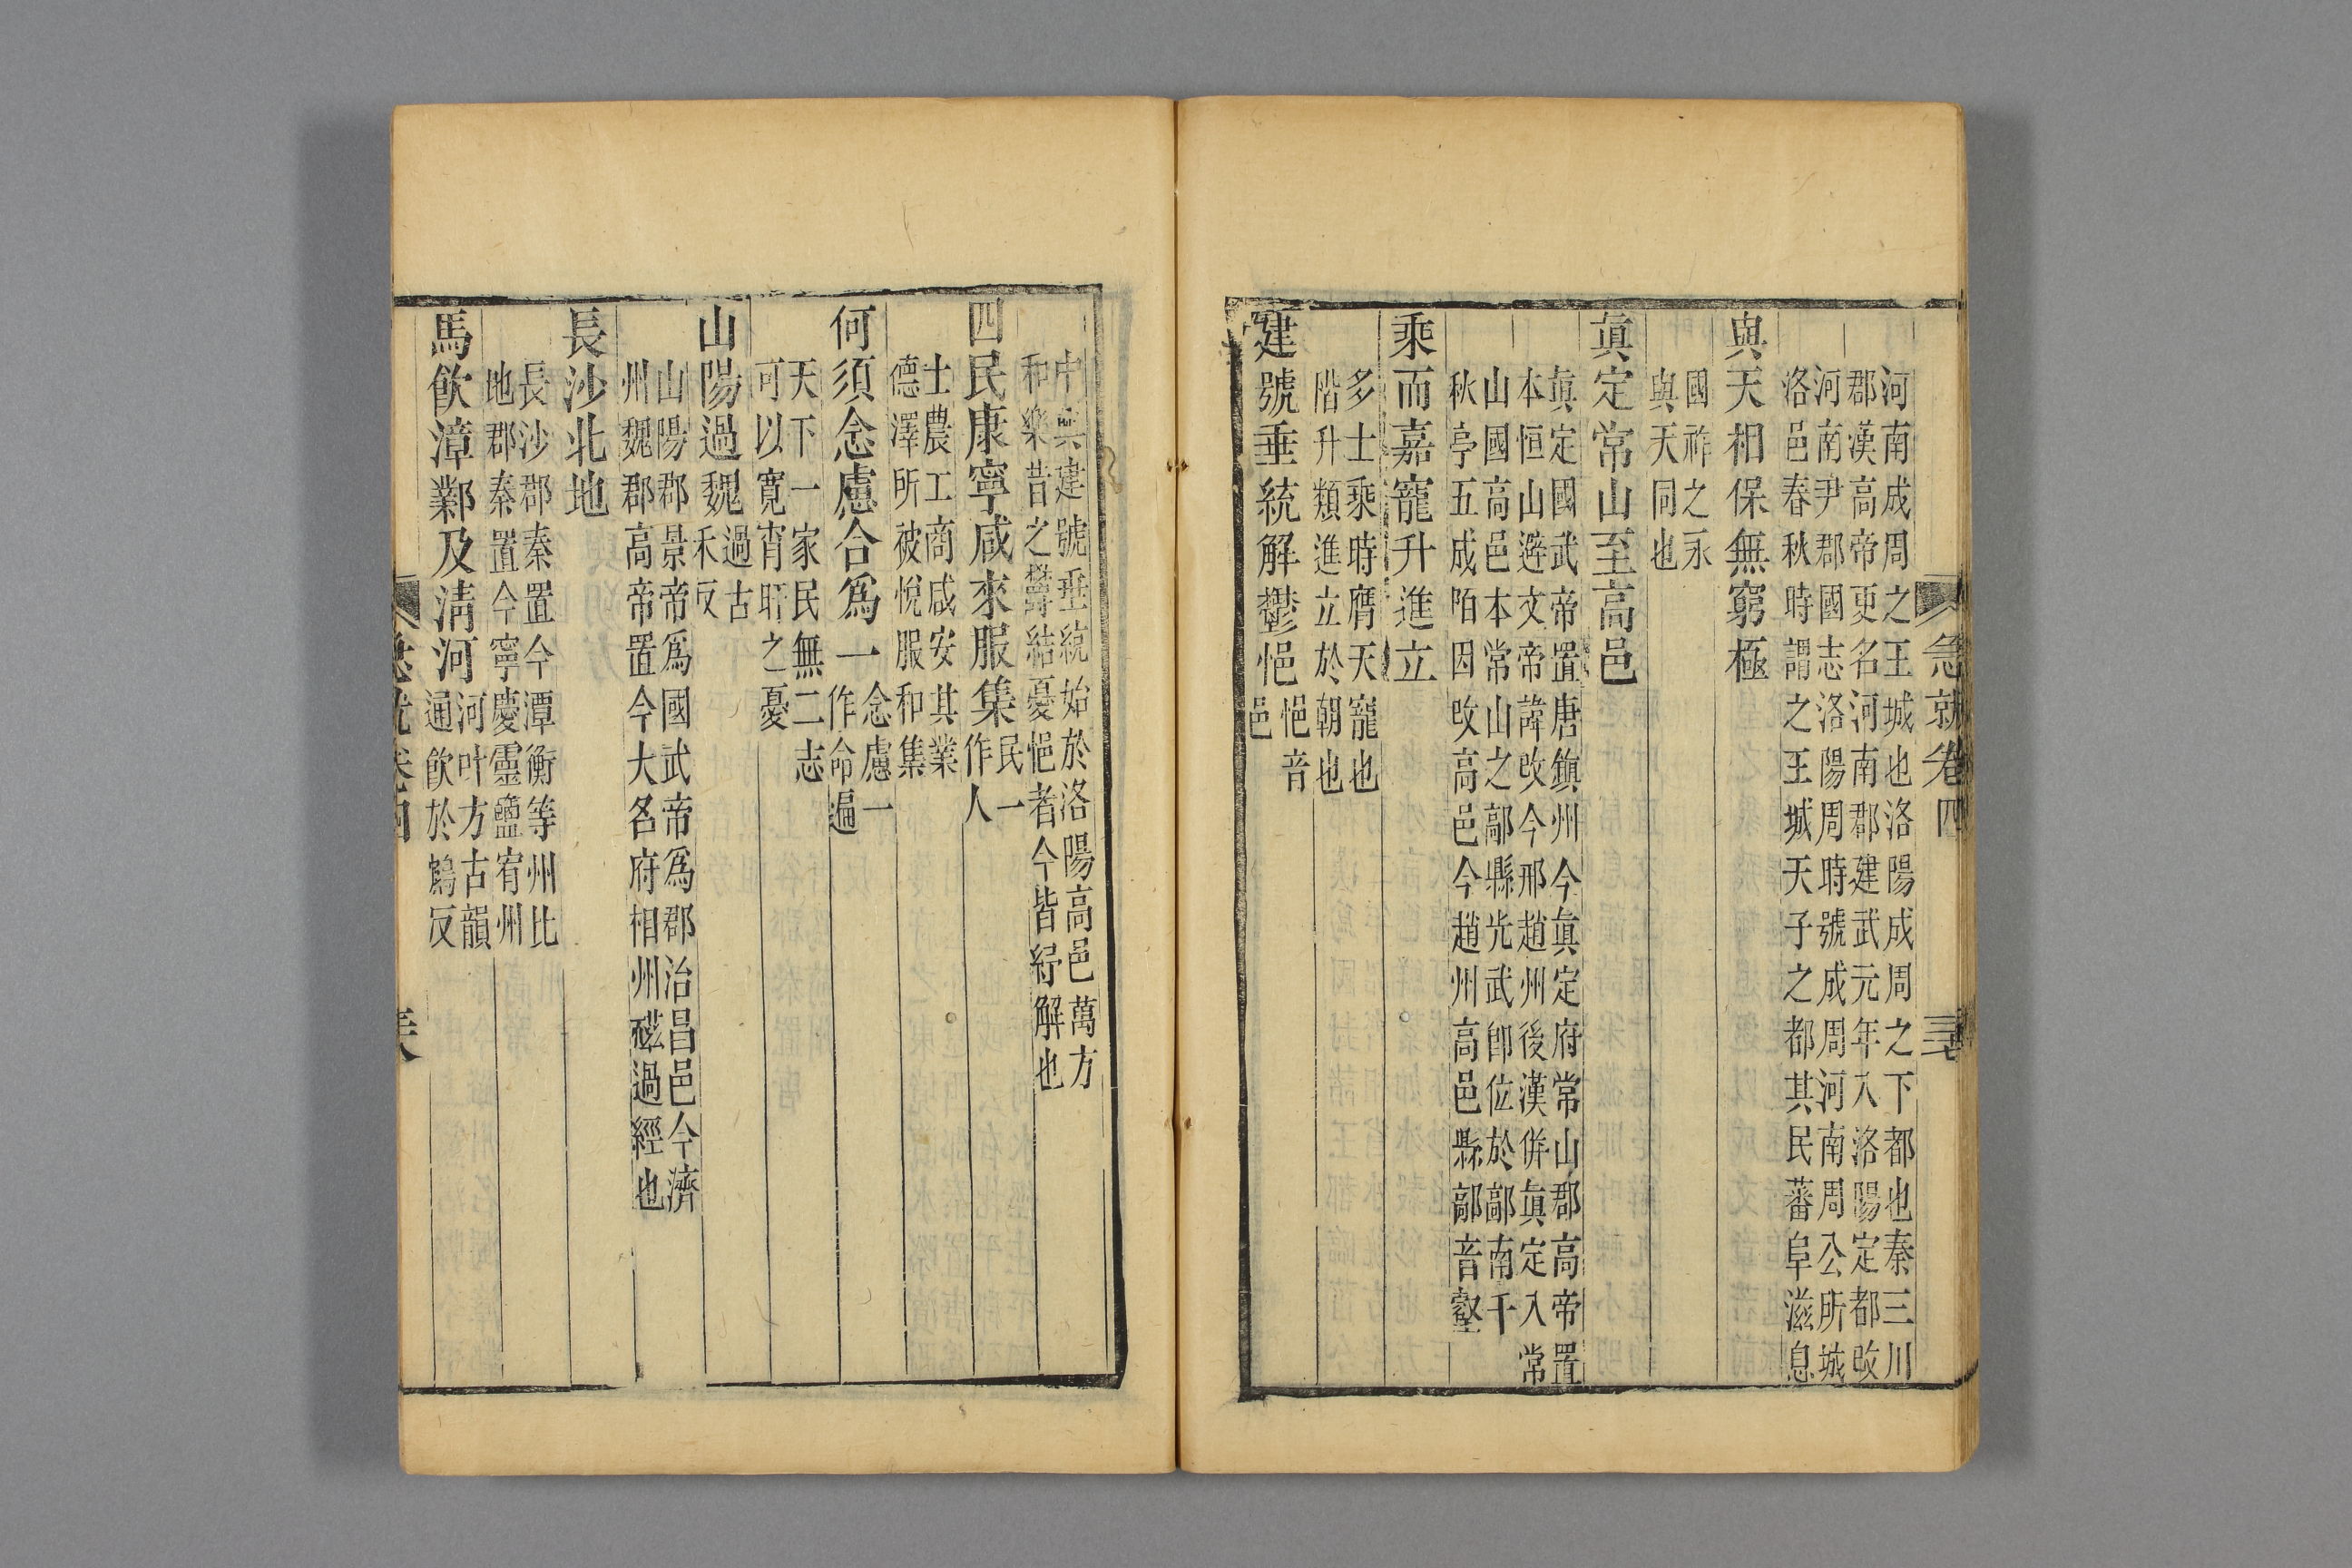 急就卷四
河南成周之王城也洛陽成周之下都也秦三川
郡漢高帝更名河南郡建武元年入洛陽定都改
河南尹郡國志洛陽周時號成周河南周公所城
洛邑春秋時謂之王城天子之都其民蕃阜滋息
與天相保無窮極
國祚之永
與天同也
真定常山至高邑
真定國武帝置唐鎮州今真定府常山郡高帝置
本恒山避文帝諱改今邢趙州後漢併真定入常
山國高邑本常山之鄗縣光武卽位於鄗南千
秋亭五成陌因改高邑今趙州高邑縣鄗音壑
乘而嘉寵升進立
多士乘時膺天寵也
階升類進立於朝也
建號垂統解鬱悒
悒音
邑
中興建號垂統始於洛陽高邑萬方
和樂昔之鬱結憂悒者今皆紓解也
四民康寧咸來服集
民一
作人
士農工商咸安其業
德澤所被悅服和集
何須念慮合爲一
念慮一
作命遍
天下一家民無二志
可以寬宵旰之憂
山陽過魏
過古
禾反
山陽郡景帝爲國武帝爲郡治昌邑今濟
州魏郡高帝置今大名府相州磁過經也
長沙北地
長沙郡秦置今潭衡等州比
地郡秦置今寧慶靈鹽宥州
馬飮漳鄴及淸河
河叶方古韻
通飮於鴆反
急就卷四